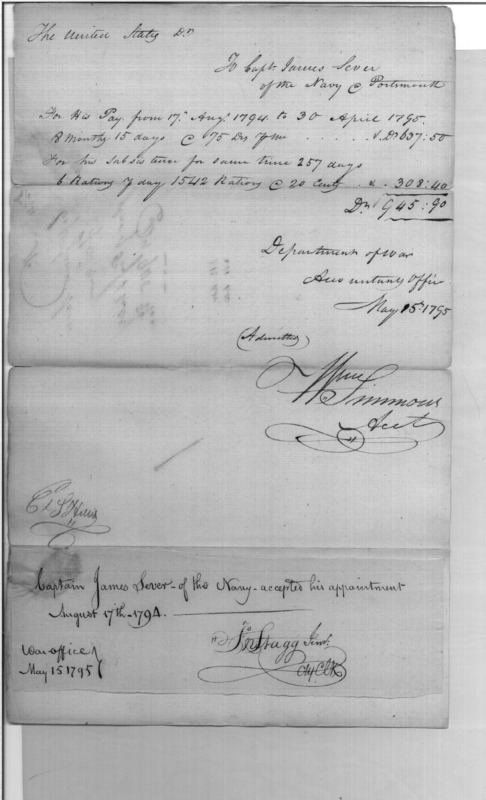 The United States Dr
To Capt. James Sever
of the Navy @ Portsmouth
For His Pay from 17th Augt. 1794 to 30 April 1795.
8 Months 15 days @ 75 Drs P Mo . . . . . . Drs 637:50
For his subsistence for same time 257 days
6 Rations P day 1542 Rations @ 20 Cents . . . 308:40
Drs 945:90
Department of War
Accountants Office
May 15th 1795
(Admitted)
Wm Simmons
Acct
Captain James Sever - of the Navy - accepted his appointment
August 17th - 1794.
Jno Stagg Junr.
Ch. Clk
War office
May 15 1795